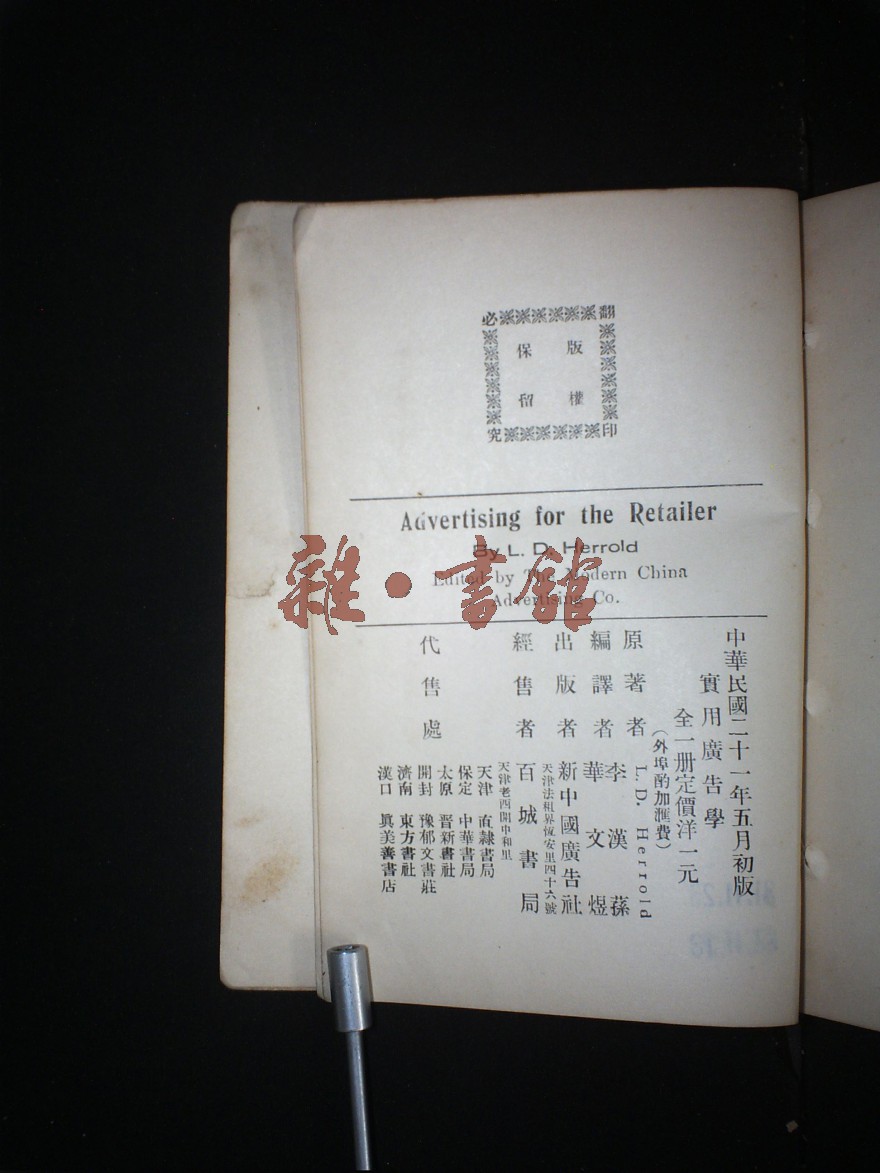 翻印必究
版權
保留
Advertising for the Retailer
By L. D. Herrold
Edited by The Modern China
Advertising Co.
雜·書館
中華民國二十一年五月初版
實用廣告學
全一册定價洋一元
(外埠酌加滙費)
原著者 L.D. Herrold
編譯者 李漢蓀 華文煜
出版者 新中國廣告社
天津法租界恆安里四十六號
經售者 百城書局
天津老西開中和里
代售處
天津 直隸書局
保定 中華書局
太原 晋新書社
開封 豫郁文書莊
濟南 東方書社
漢口 眞美善書店